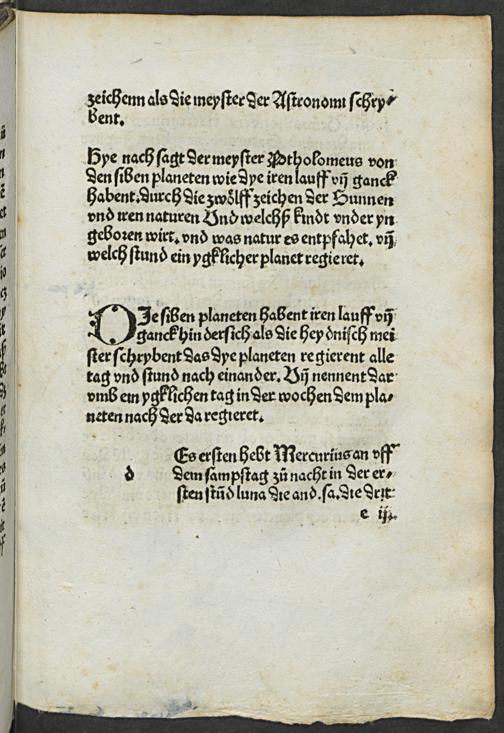 zeichenn als die meyster der Astronomi schry⸗
bent.
Hye nach sagt der meyster Ptholomeus von
den siben planeten wie dye iren lauff vñ ganck
habent. durch die zwölff zeichen der Sunnen
vnd iren naturen Vnd welchß kindt vnder yn
geboren wirt. vnd was natur es entpfahet. vñ
welch stund ein ygklicher planet regieret.
DIe siben planeten habent iren lauff vñ
ganck hindersich als die heydnisch mei
ster schrybent das dye planeten regierent alle
tag vnd stund nach einander. Vñ nennent dar
vmb ein ygklichen tag in der wochen dem pla⸗
neten nach der da regieret.
Es ersten hebt Mercurius an vff
d dem sampstag zů nacht in der er⸗
sten stūd luna die and. sa. die drit
e iij.